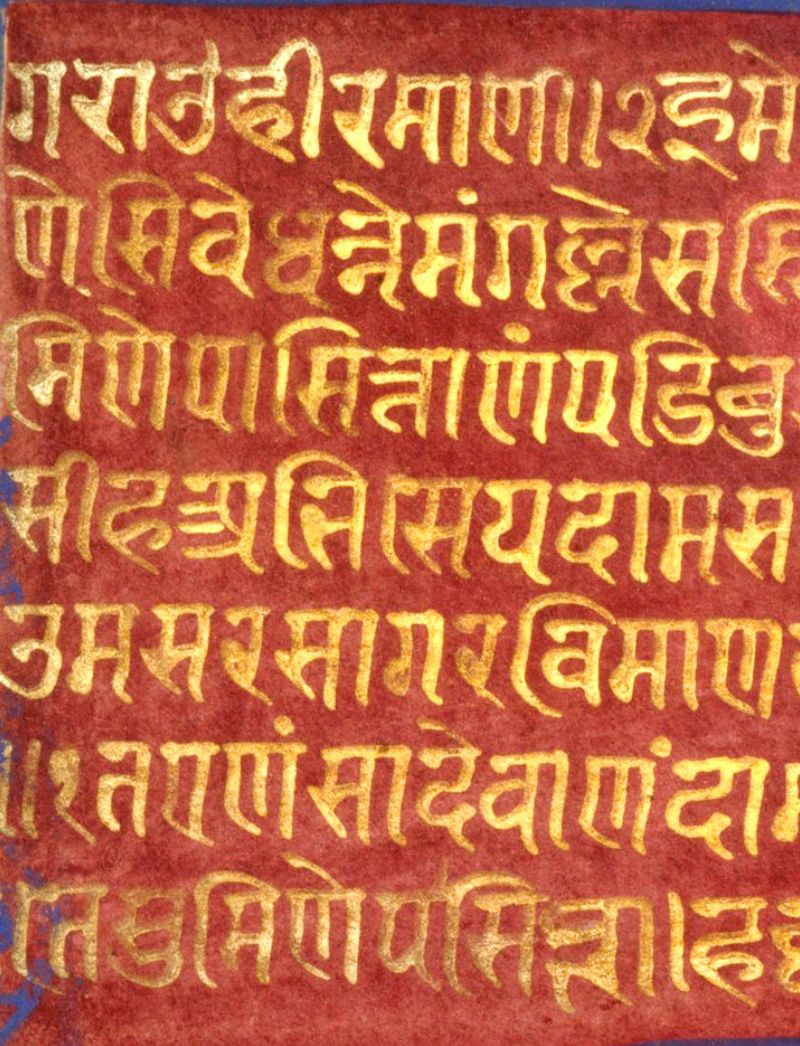 गराउहीरमाणी॥२इमे
णेसिवेधन्नेमंगल्लेसस्सि
मिणेपासित्ताणंपडिबु
सीहअभिसेयदामस
उमसरसागरविमाण
॥१तएणंसादेवाणंदा
तेसुमिणेपासित्ता।ह